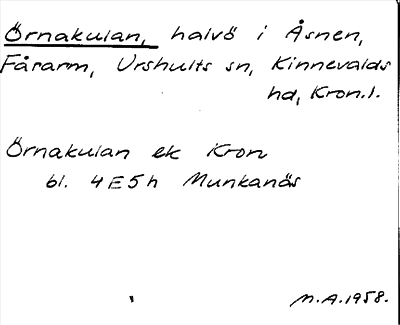 Örnakulan, halvö i Åsnen,
Fårarm, Urshults sn, Kinnevalds
hd, Kron.l.
Örnakulan ek Kron
bl. 4E5h Munkanäs
M.A. 1958.